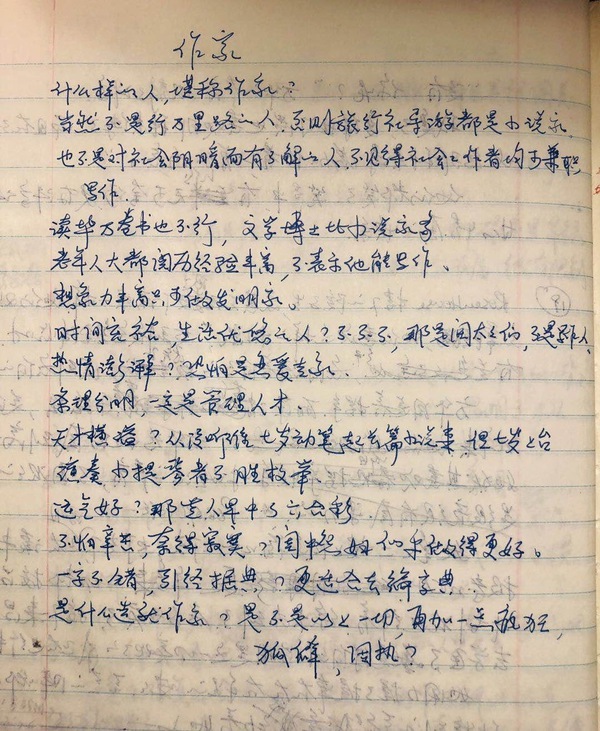 作家
什么样的人,堪称作家?
当然不是行万里路的人,否则旅行社导游都是小说家
也不是对社会阴暗面有了解的人,不见得社会工作者均可兼职
写作.
读毕万卷书也不行,文学博士比小说家多
老年人大都阅历经验丰富,不表示他能写作、
想象力丰富可做发明家。
时间充裕,生活优悠之人?不不不,那是阔太太们,不是野人、
热情澎湃?恐怕是恋爱专家.
条理分明,一定是管理人才.
天才横溢?从没听信七岁动笔起长篇小说来,但七岁上台
演奏小提琴者不胜枚举
运气好?那艺人早中了六合彩.
不怕辛苦,奈得寂寞?闺中怨妇们乎做得更好。
一字不错,引经据典,?更适合去编字典.
是什么造就作家?是不是以上一切,再加一点疯狂,
孤僻,固执?